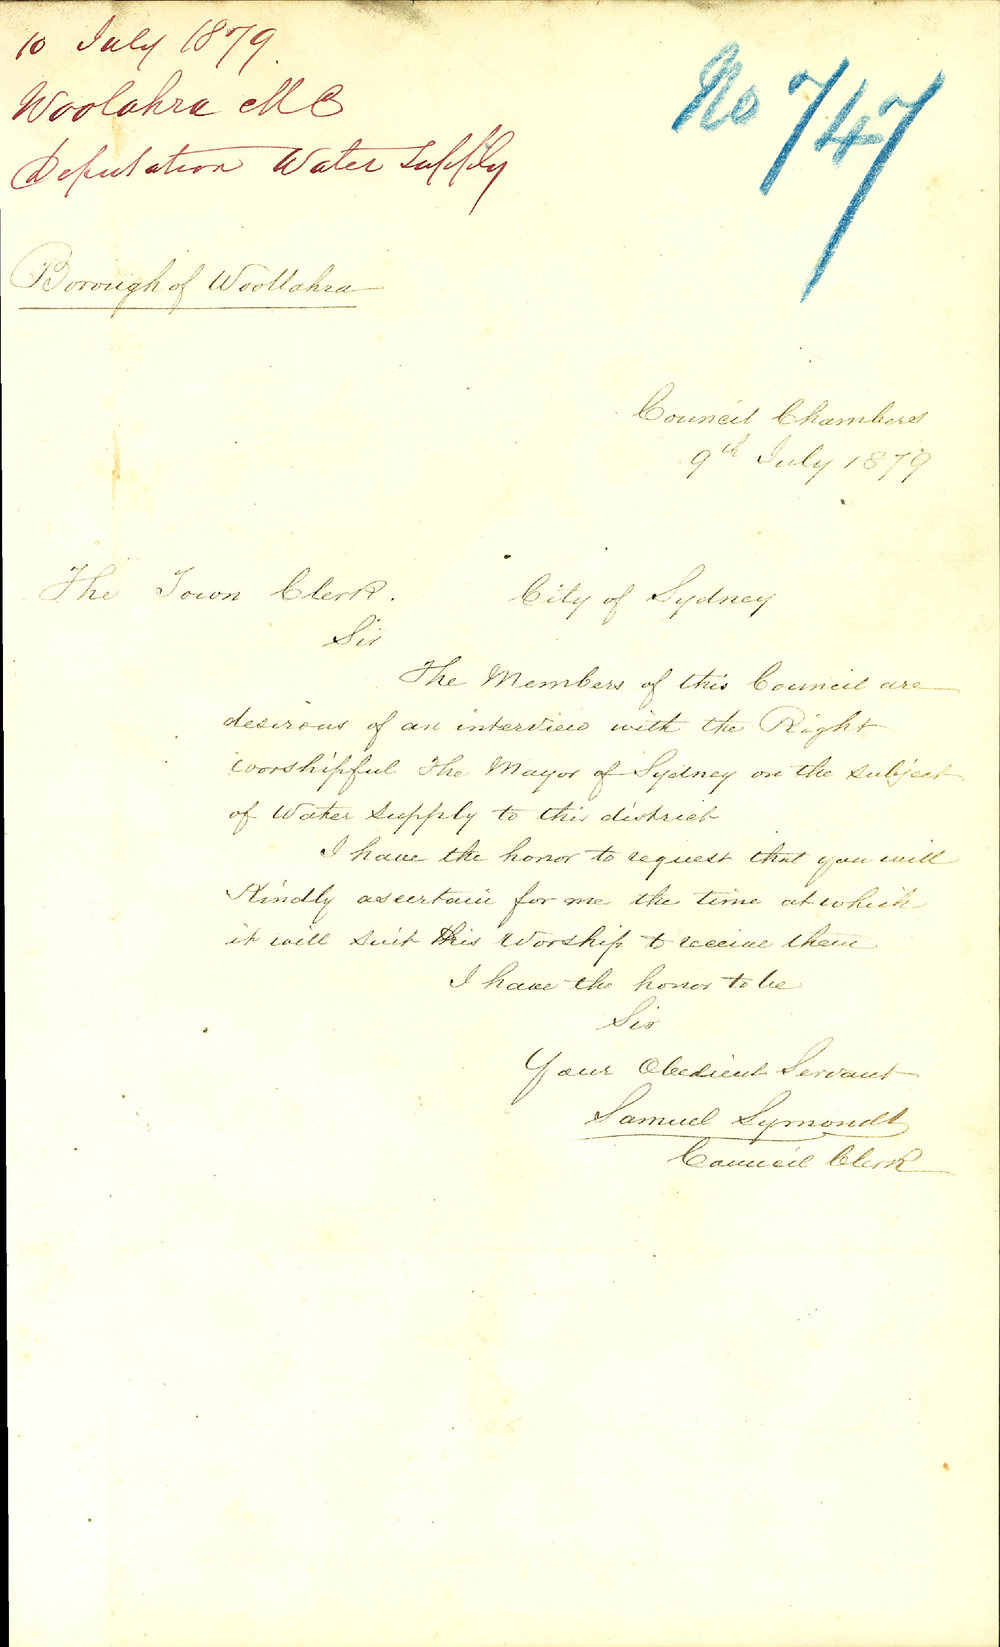 10 July 1879
Woolahra M C
Deputation Water Supply
No 747
Borough of Woollahra
Council Chambers
9th July 1879
The Town Clerk. City of Sydney
Sir
The Members of this Council are
desirous of an interview with the Right
worshipful the Mayor of Sydney on the subject
of Water supply to this district
I have the honor to request that you will
Kindly ascertain for me the time at which
it will suit His Worship to receive them
I have the honor to be
Sir
Your Obedient Servant
Samuel Symonds
Council Clerk